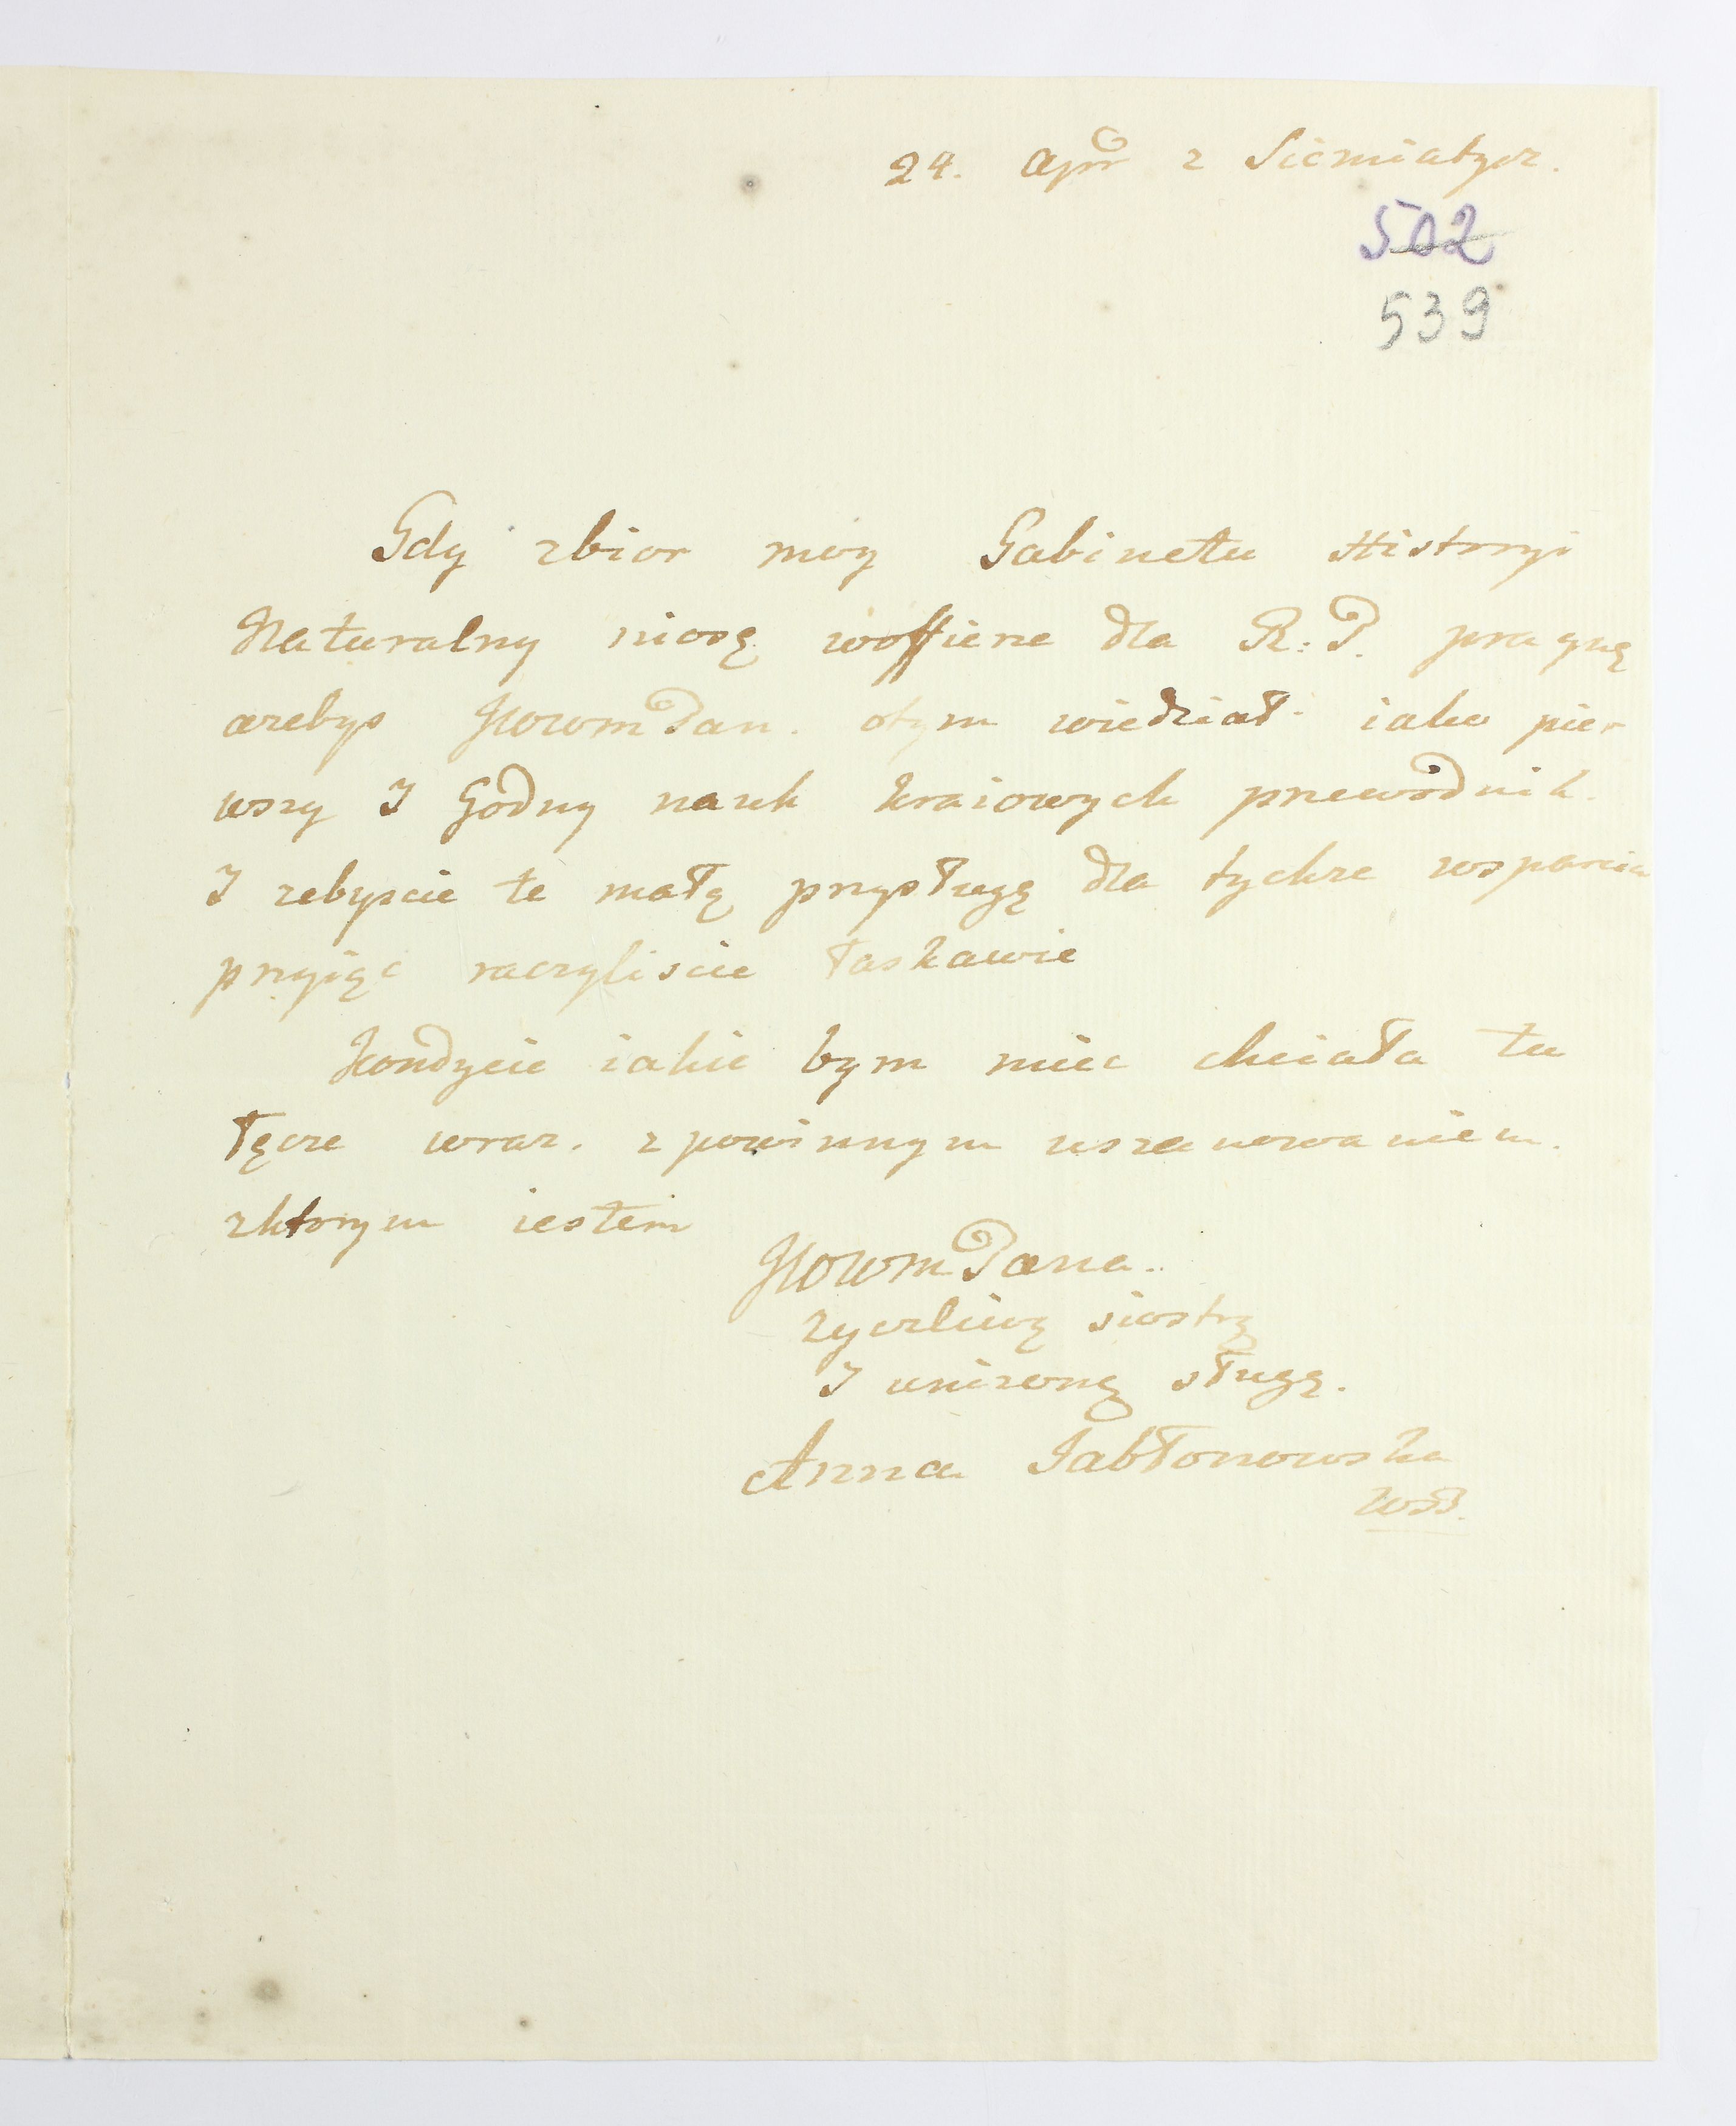 24. Apr z Siemiatycz.
502
539
Gdy zbior moy Gabinetu Historyi
Naturalny niosę woffierze dla R: P. pragnę
azebys JWWM Pan. otym wiedział iako pier
wszy I Godny nauk kraiowych przewodnik.
I zebyscie te małą przysługę dla tychze wsparcia
przyiąc raczyliscie łaskawie
Kondycie iakie bym miec chciała tu
łącze wraz. z powinnym uszanowaniem.
zktorym iestem
JWWM Pana.
zyczliwą siostrą
I unizoną sługą.
Anna Jabłonowska